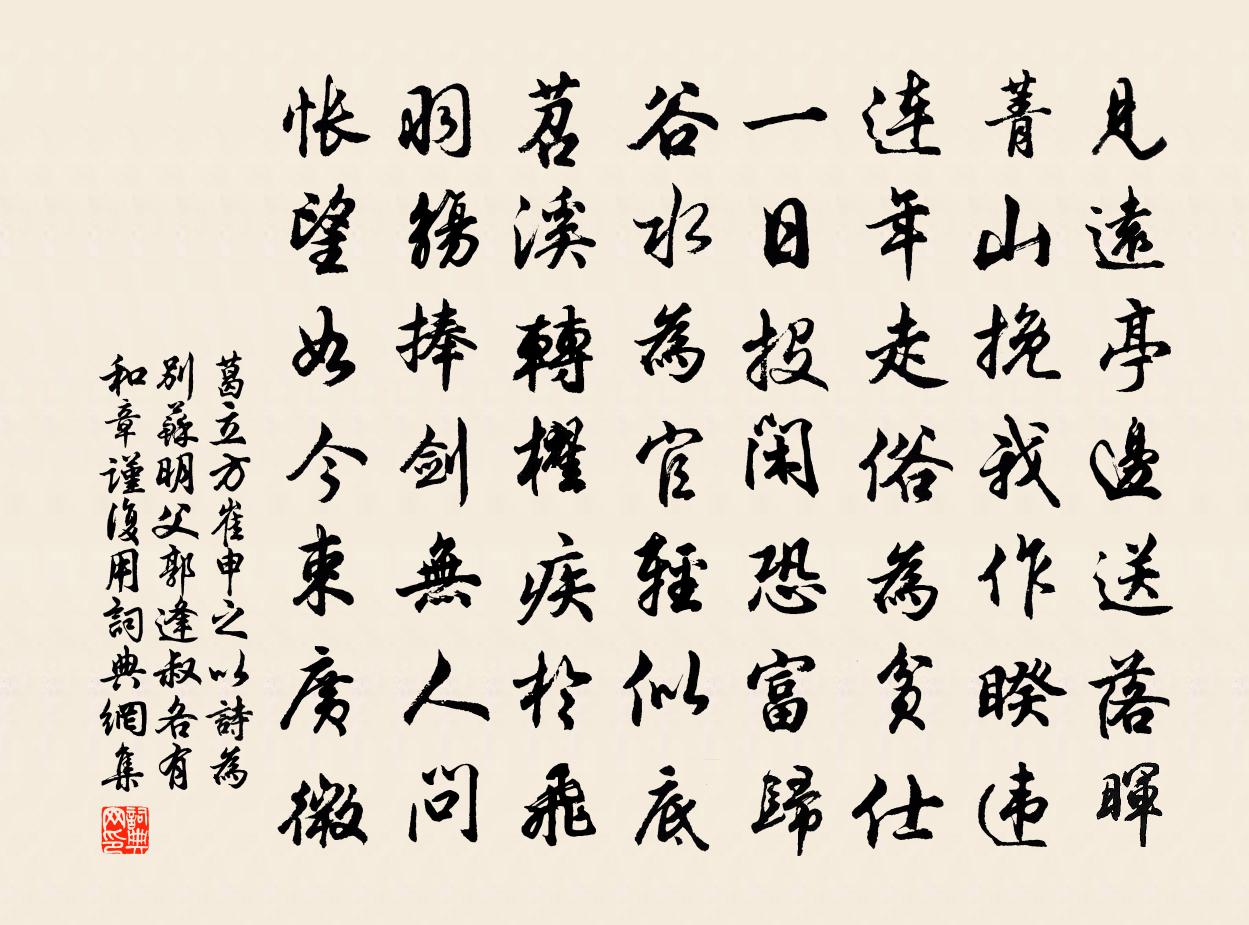 見遠亭邊送落暉
菁山挽我作睽違
連年走俗為貧仕
一日投閑恐富歸
谷水為官輕似底
苕溪轉櫂疾於飛
羽觴捧劍無人問
悵望如今束廣微
葛立方崔申之以詩為
別蘇明父郭逢叔各有
和章謹復用詞典網集
詞典
网印